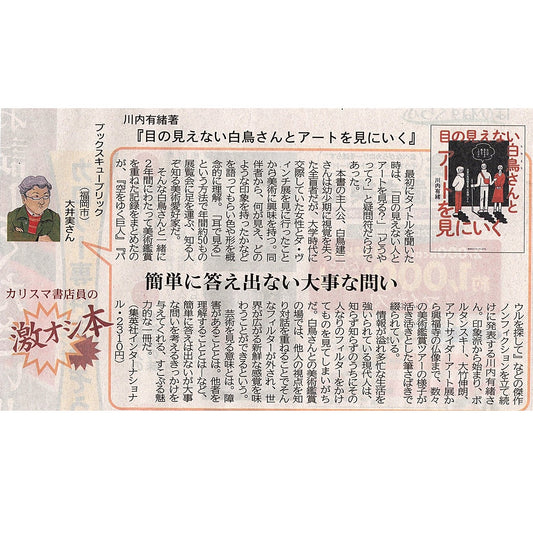 川内有緒著
『目の見えない白鳥さんとアートを見にいく』
目の見えない
白鳥さんと
アートを
見にいく
川内有緒
最初にタイトルを聞いた
時は、「目の見えない人と
アートを見る？」「どうや
って？」と疑問符だらけで
あった。
本書の主人公、白鳥建二
さんは幼少期に視覚を失っ
た全盲者だが、大学時代に
交際していた女性とダ・ヴ
ィンチ展を見に行ったこと
から美術に興味を持つ。同
伴者から、何が見え、どの
ような印象を持ったかなど
を語ってもらい色や形を概
念的に理解。「耳で見る」
という方法で年間約50もの
展覧会に足を運ぶ、知る人
ぞ知る美術愛好家だ。
そんな白鳥さんと一緒に
２年間にわたって美術鑑賞
を重ねた記録をまとめたの
が、『空をゆく巨人』『バ
ブックスキューブリック
（福岡市）
大井実さん
簡単に答え出ない大事な問い
カリスマ書店員の
激オシ本
ウルを探して』などの傑作
ノンフィクションを立て続
けに発表する川内有緒さ
ん。印象派から始まり、ボ
ルタンスキー、大竹伸朗、
アウトサイダーアート展か
ら興福寺の仏像まで、数々
の美術鑑賞ツアーの様子が
活き活きとした筆さばきで
綴られている。
情報が溢れ多忙な生活を
強いられている現代人は、
知らず知らずのうちにその
人なりのフィルターをかけ
てものを見てしまいがち
だ。白鳥さんとの美術鑑賞
の場では、他人の視点を知
り対話を重ねることでそん
なフィルターが外され、世
界が広がる新鮮な感覚を味
わうことができるという。
芸術を見る意味とは。障
害があることとは。他者を
理解することとは―など、
簡単に答えは出ないが大事
な問いを考えるきっかけを
与えてくれる、すこぶる魅
力的な一冊だ。
（集英社インターナショナ
ル・2310円）